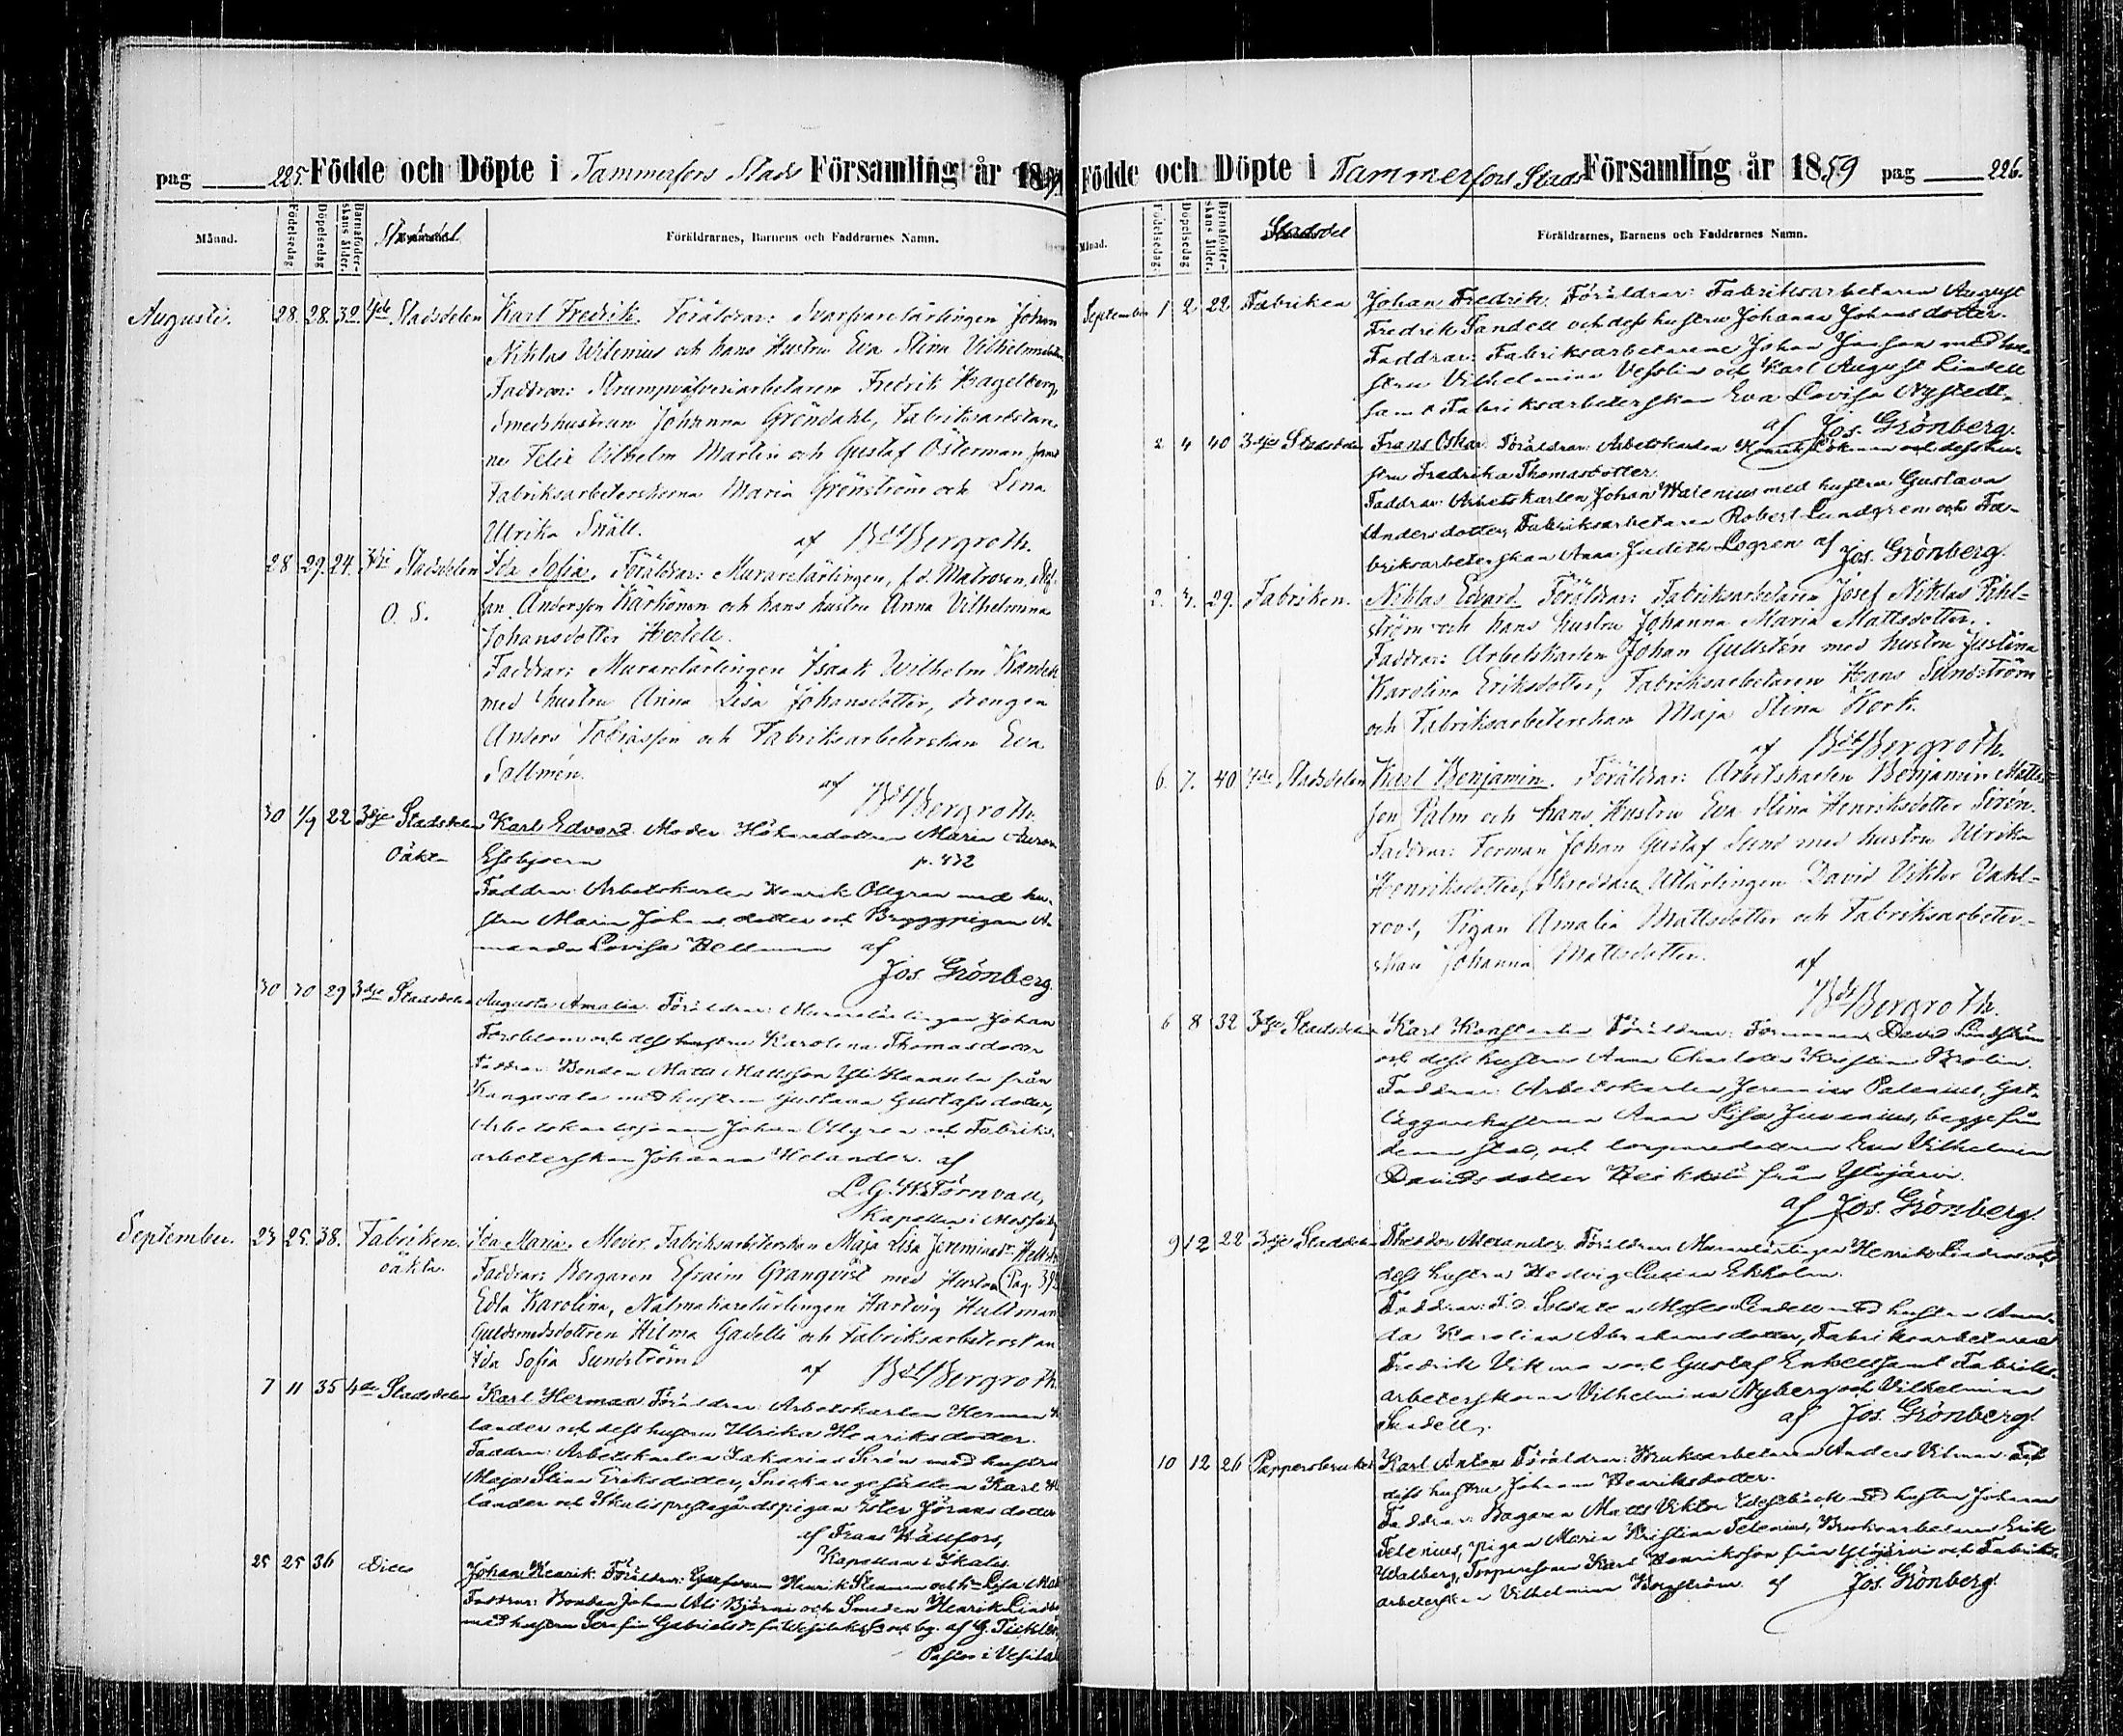 pag 225. Födde och Döpte i Tammerfors Stads Församling år 1859.
Månad. Födelsedag Döpelsedag Barnaföderskans ålder. Stadsdel Föräldrarnes, Barnens och Faddrarnes Namn.
Augusti. 28. 28. 32. 4de Stadsdelen Karl Fredrik. Föräldrar: Svarfvarelärlingen Johan
Niklas Wilenius och hans Hustru Eva Stina Vilhelmsdotter
Faddrar: Strumpväfveriarbetaren Fredrik Hagelberg,
Smedshustrun Johanna Gröndahl, Fabriksarbetare
ne Felix Vilhelm Martin och Gustaf Österman samt
Fabriksarbeterskorna Maria Grönström och Lena
Ulrika Snäll. af Bd Bergroth.
28 29. 24. 3dje Stadsdelen Ida Sofia. Föräldrar: Murarelärlingen, f.d. Matrosen, Stef-
O. S. fan Andersson Kärkönen och hans hustru Anna Vilhelmina
Johansdotter Hertell.
Faddrar: Murarelärlingen Isaak Wilhelm Kandell
med hustru Anna Lisa Johansdotter, drengen
Anders Tobiasson och Fabriksarbeterskan Eva
Sallmén. af Bd Bergroth.
30 1/9 22 3dje Stadsdelen Karl Edvard. Moder Hökaredottren Maria Aurora
Oäkta Esbjörn p. 472
Faddrar: Arbetskarlen Henrik Ollgren med hu-
stru Maria Johansdotter och Bryggpigan A-
manda Lovisa Hellman af
Jos. Grönberg.
30 30 29 3dje Stadsdelen Augusta Amalia. Föräldrar: Murarelärlingen Johan
Forsblom och dess hustru Karolina Thomasdotter
Faddrar: Bonden Matts Mattsson Yli Hannula från
Kangasala med hustru Gustava Gustafsdotter,
Arbetskarlssonen Johan Ollgren och Fabriks-
arbeterskan Johanna Helander. af
L. G. W. Törnvall,
Kapellan i Messuby
September. 23 25. 38. Fabriken. Ida Maria. Moder, Fabriksarbeterskan Maja Lisa Jeremiasdr
oäkta. Faddrar: Borgaren Efraim Granqvist med Hustru (Pag. 39
Edla Karolina, Nålmakarelärlingen Hartvig Hultman
Guldsmedsdottren Hilma Gadelli och Fabriksarbeterskan
Ida Sofia Sundström af Bd Bergroth.
7 11 35 4de Stadsdelen Karl Herman Föräldrar: Arbetskarlen Herman
lander och dess hustru Ulrika Henriksdotter.
Faddrar: Arbetskarlen Zakarias Sirén med hustru
Maja Stina Eriksdotter, Snickaregesällen Karl
lander och Ikalis prestegårdspigan Ester Göransdotter
af Frans Hällfors,
Kapellan i Ikalis
25 25 36 Dito Johan Henrik. Föräldrar: Henrik och Lisa
Faddrar: Bonden Johan Ali Björni och Smeden Henrik
med hustru Serafia Gabrielsdr af G.
Pastor i Vesilaks
Födde och Döpte i Tammerfors Stads Församling år 1859 pag 226.
Månad. Födelsedag. Döpelsedag Barnaföderskans ålder. Stadsdel Föräldrarnes, Barnens och Faddrarnes Namn.
September 1 2 22 Fabriken Johan Fredrik. Föräldrar: Fabriksarbetaren August
Fredrik Sandell och dess hustru Johanna Johansdotter.
Faddrar: Fabriksarbetarene Johan Jansson med hu-
stru Vilhelmina Vesslin och Karl August Lindell
samt Fabriksarbeterskan Eva Lovisa Nystedt.
af Jos. Grönberg.
2 4 40 3dje Stadsdelen Frans Oskar. Föräldrar: Arbetskarlen Henrik Ekman och dess hu-
stru Fredrika Thomasdotter.
Faddrar: Arbetskarlen Johan Walenius med hustru Gustava
Andersdotter, Fabriksarbetaren Robert Lundgren och Fa-
briksarbeterskan Anna Judith Logren af Jos. Grönberg.
2. 3. 29. Fabriken. Niklas Edvard. Föräldrar: Fabriksarbetaren Josef Niklas Pihl-
ström och hans hustru Johanna Maria Mattsdotter.
Faddrar: Arbetskarlen Johan Gullstén med hustru Justina
Karolina Eriksdotter, Fabriksarbetaren Hans Sundström
och Fabriksarbeterskan Maja Stina Kork.
af Bd Bergroth.
6. 7. 40 4de Stadsdelen Karl Benjamin. Föräldrar: Arbetskarlen Benjamin Matts-
son Palm och hans Hustru Eva Stina Henriksdotter Sirén.
Faddrar: Forman Johan Gustaf Lund med hustru Ulrika
Henriksdotter, Skreddare Utlärlingen David Viktor Vahl-
roos, Pigan Amalia Mattsdotter och Fabriksarbeter-
skan Johanna Mattsdotter.
af
Bd Bergroth.
6 8 32 3dje Stadsdelen Karl Konstantin Föräldrar: Formannen David Lindström
och dess hustru Anna Charlotta Kristina Brolin.
Faddrar: Arbetskarlen Jeremias Palenius, gat-
läggarehustrun Anna Lisa Juvenius, begge från
denna stad, och torparedottren Eva Vilhelmina
Davidsdotter Heikkilä från Ylöjärvi.
af Jos. Grönberg.
9 12 22 3dje Stadsdelen Theodor Alexander. Föräldrar: Murarelärlingen Henrik Lindroos och
dess hustru Hedvig Lucina Ekholm.
Faddrar: F.d. Soldaten Moses Lindell med hustru Aman-
da Karolina Abrahamsdotter, Fabriksarbetarene
Fredrik Vikman och Gustaf Enkell samt Fabriks-
arbeterskorna Vilhelmina Nyberg och Vilhelmina
Sandell. af Jos. Grönberg.
10 12 26 Pappersbruket Karl Anton Föräldrar: Bruksarbetaren Anders Vilman och
dess hustru Johanna Henriksdotter.
Faddrar: Bagaren Matts Viktor Westbäck med hustru Johanna
Telenius, pigan Maria Kristina Telenius, Bruksarbetaren Erik
Walberg, Torparesonen Karl Henriksson från Ylöjärvi och Fabriks-
arbeterskan Vilhelmina Bergström. af Jos. Grönberg.